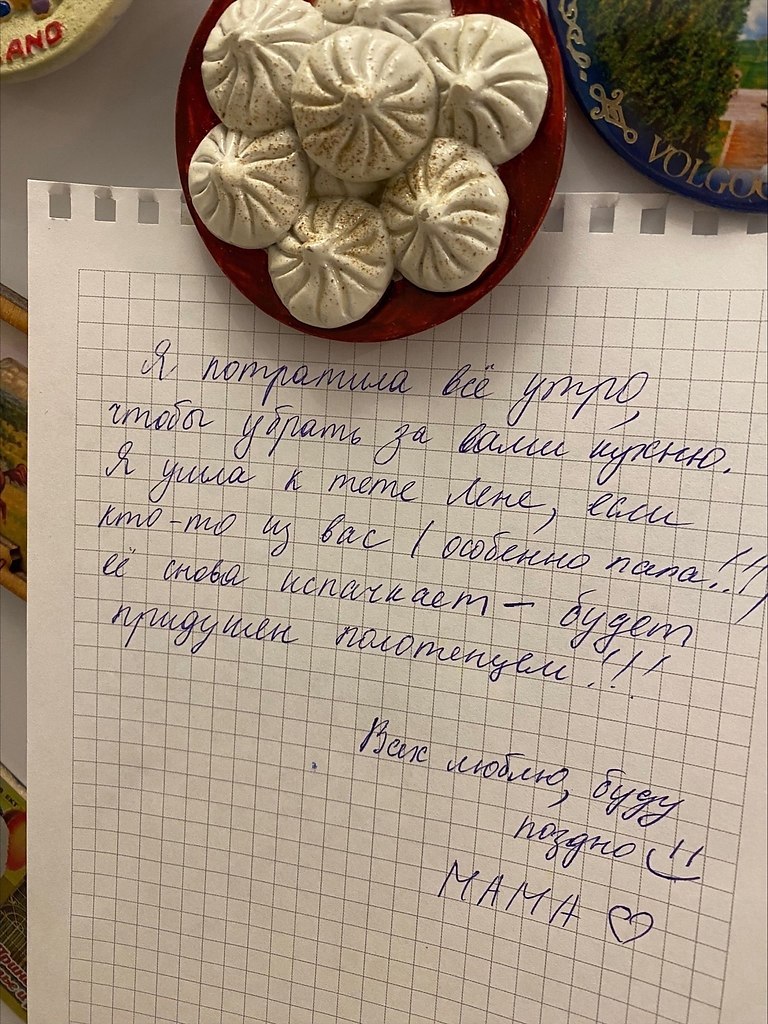 LAND
VOLGOG
Я потратила всё утро,
чтобы убрать за вами кухню.
Я ушла к тете Лене, если
кто-то из вас (особенно папа!!!)
её снова испачкает – будет
придушен полотенцем!!!
Вас люблю, буду
поздно
МАМА ♡